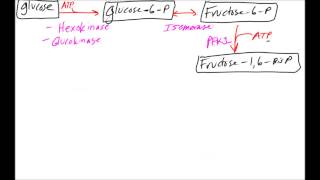 glucose ATP glucose-6-P Fructose-6-P
- Hexokinase Isomerase
- Glucokinase PFK1 ATP
Fructose-1,6-bisP